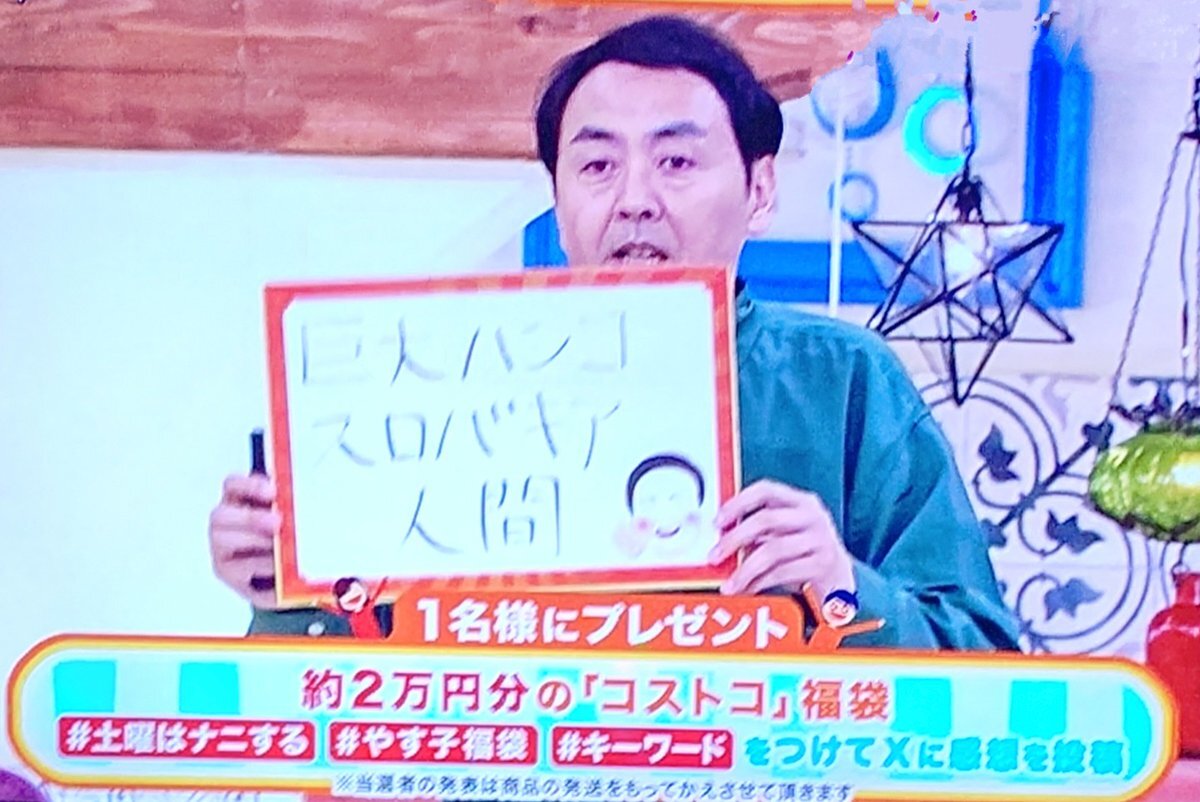 巨大ハンコ
スロバキア
人間
1名様にプレゼント
約2万円分の「コストコ」福袋
#土曜はナニする #やす子福袋 #キーワード をつけてXに感想を投稿
※当選者の発表は商品の発送をもってかえさせて頂きます